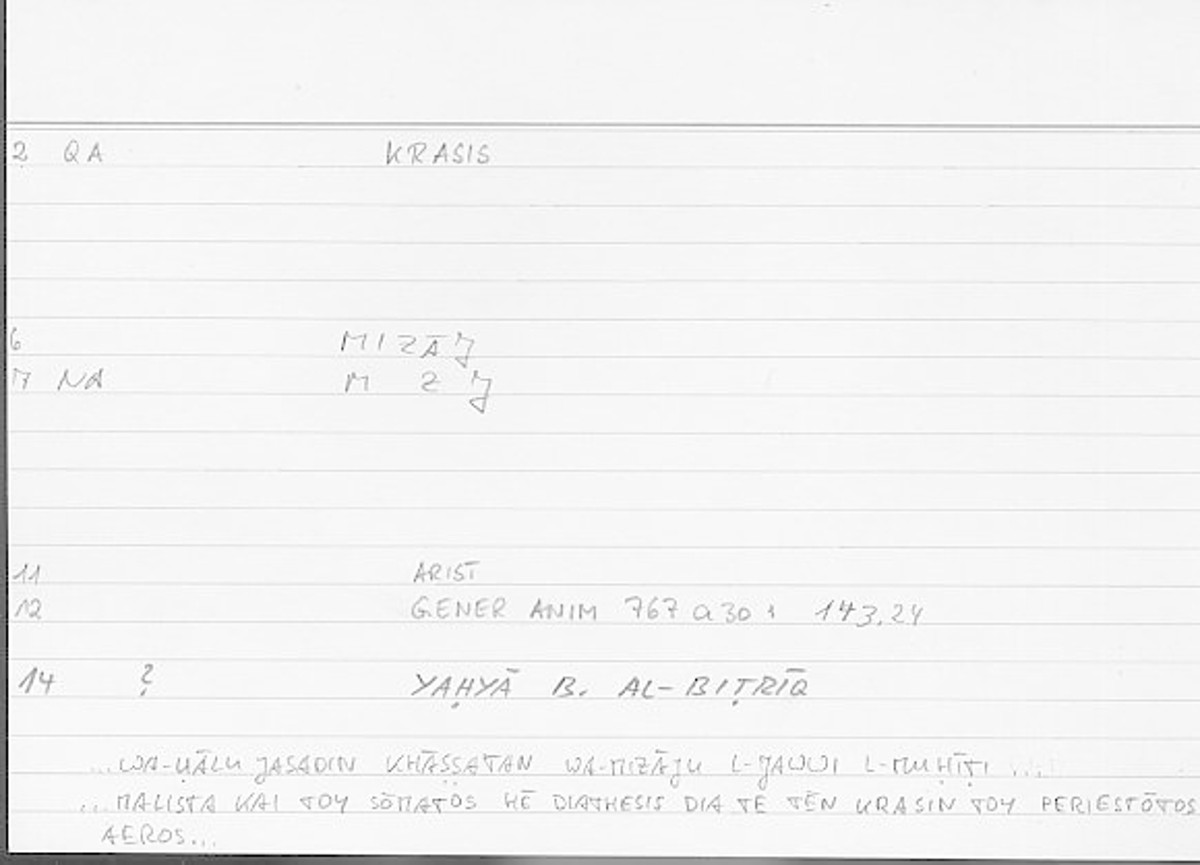 2 QA KRASIS
6 MIZĀJ
7 NA M Z J
11 ARIST
12 GENER ANIM 767 a 30 ; 143.24
14 ? YAḤYĀ B. AL-BIṬRĪQ
...WA-ḤĀLU JASADIN KHĀṢṢATAN WA-MIZĀJU L-JAWWI L-MUḤĪṬI ...
...MALISTA KAI TOY SŌMATOS HĒ DIATHESIS DIA TE TĒN KRASIN TOY PERIESTŌTOS
AEROS...